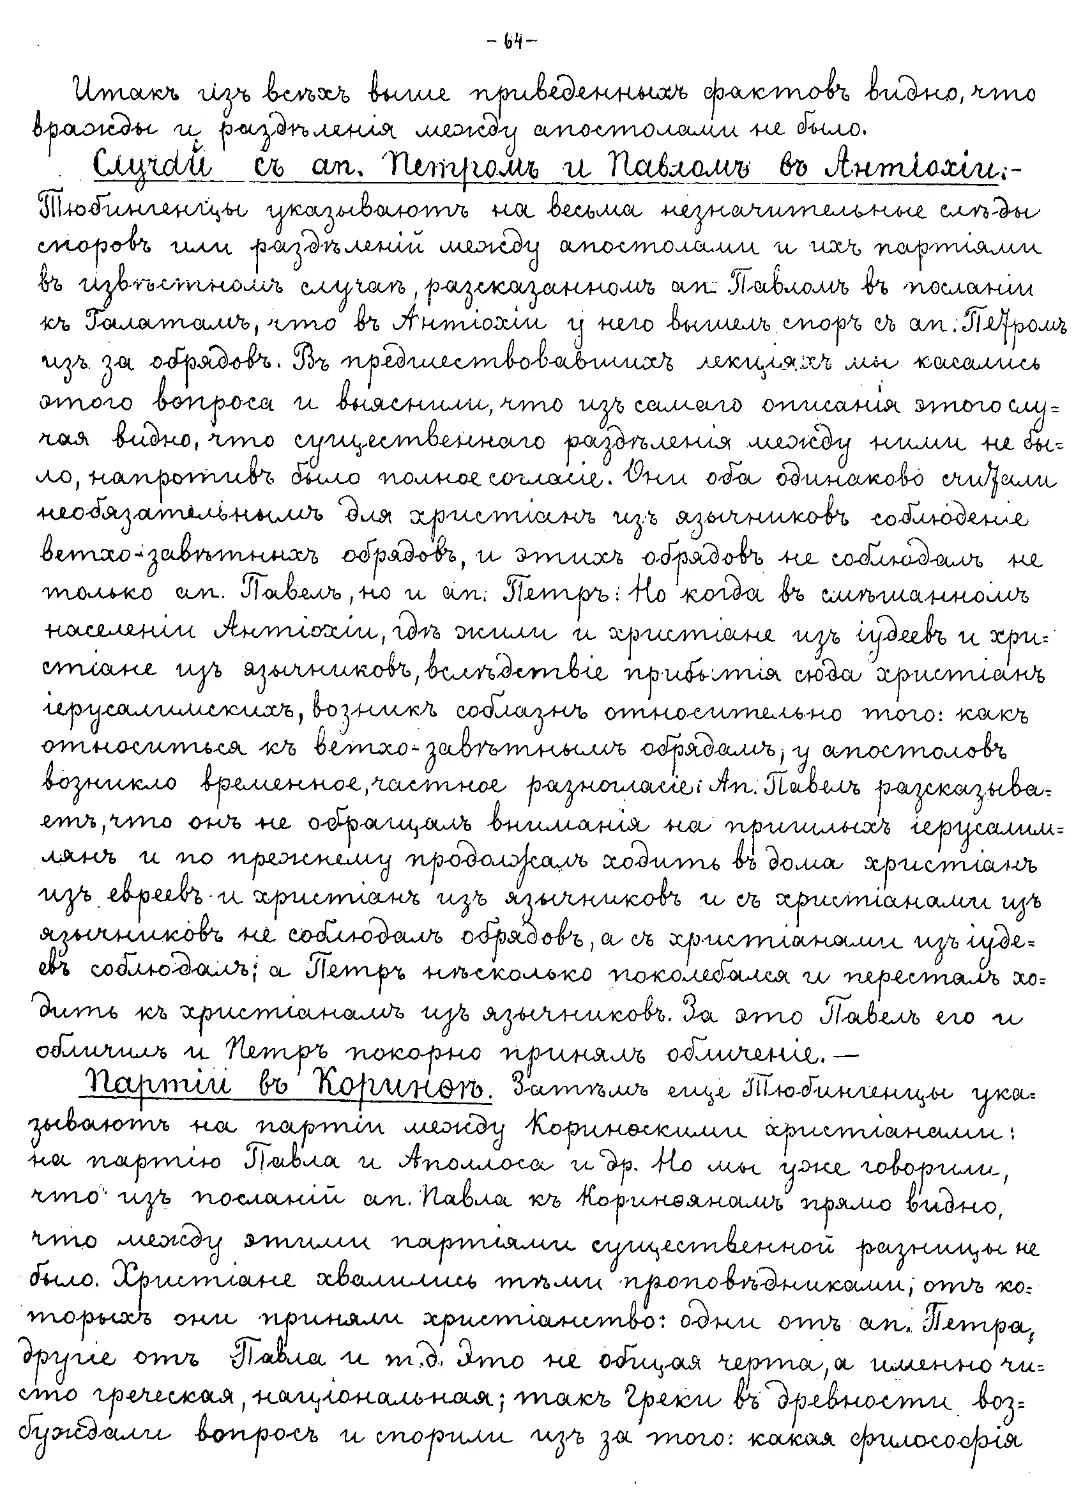 -64-
Итакъ изъ всѣхъ выше приведенныхъ фактовъ видно, что
вражды и раздѣленія между апостолами не было.
Случай съ ап. Петромъ и Павломъ въ Антіохіи:-
Тюбингенгцы указываютъ на весьма незначительные слѣды
споровъ или раздѣленій между апостолами и ихъ партіями
въ извѣстномъ случаѣ, разсказанномъ ап. Павломъ въ посланіи
къ Галатамъ, что въ Антіохіи у него вышелъ споръ съ ап. Петромъ
изъ за обрядовъ. Въ предшествовавшихъ лекціяхъ мы касались
этого вопроса и выяснили, что изъ самаго описанія этого слу=
чая видно, что существеннаго раздѣленія между ними не бы=
ло, напротивъ было полное согласіе. Они оба одинаково считали
необязательнымъ для христіанъ изъ язычниковъ соблюденіе
ветхо-завѣтныхъ обрядовъ, и этихъ обрядовъ не соблюдалъ не
только ап. Павелъ, но и ап. Петръ. Но когда въ смѣшанномъ
населеніи Антіохіи, гдѣ жили и христіане изъ іудеевъ и хри=
стіане изъ язычниковъ, вслѣдствіе прибытія сюда христіанъ
іерусалимскихъ, возникъ соблазнъ относительно того: какъ
относиться къ ветхо-завѣтнымъ обрядамъ, у апостоловъ
возникло временное, частное разногласіе: Ап. Павелъ разсказыва=
етъ, что онъ не обращалъ вниманія на пришлыхъ іерусалим=
лянъ и по прежнему продолжалъ ходить въ дома христіанъ
изъ евреевъ и христіанъ изъ язычниковъ и съ христіанами изъ
язычниковъ не соблюдалъ обрядовъ, а съ христіанами изъ іуде=
евъ соблюдалъ; а Петръ нѣсколько поколебался и пересталъ хо=
дить къ христіанамъ изъ язычниковъ. За это Павелъ его и
обличилъ и Петръ покорно принялъ обличеніе. —
Партіи въ Коринѳѣ. Затѣмъ еще Тюбингенцы ука=
зываютъ на партіи между Коринѳскими христіанами:
на партію Павла и Аполлоса и др. Но мы уже говорили,
что изъ посланій ап. Павла къ Коринѳянамъ прямо видно,
что между этими партіями существенной разницы не
было. Христіане хвалились тѣми проповѣдниками, отъ ко=
торыхъ они приняли христіанство: одни отъ ап. Петра,
другіе отъ Павла и т.д. Это не общая черта, а именно чи=
сто греческая, національная; такъ Греки въ древности воз=
буждали вопросъ и спорили изъ за того: какая философія